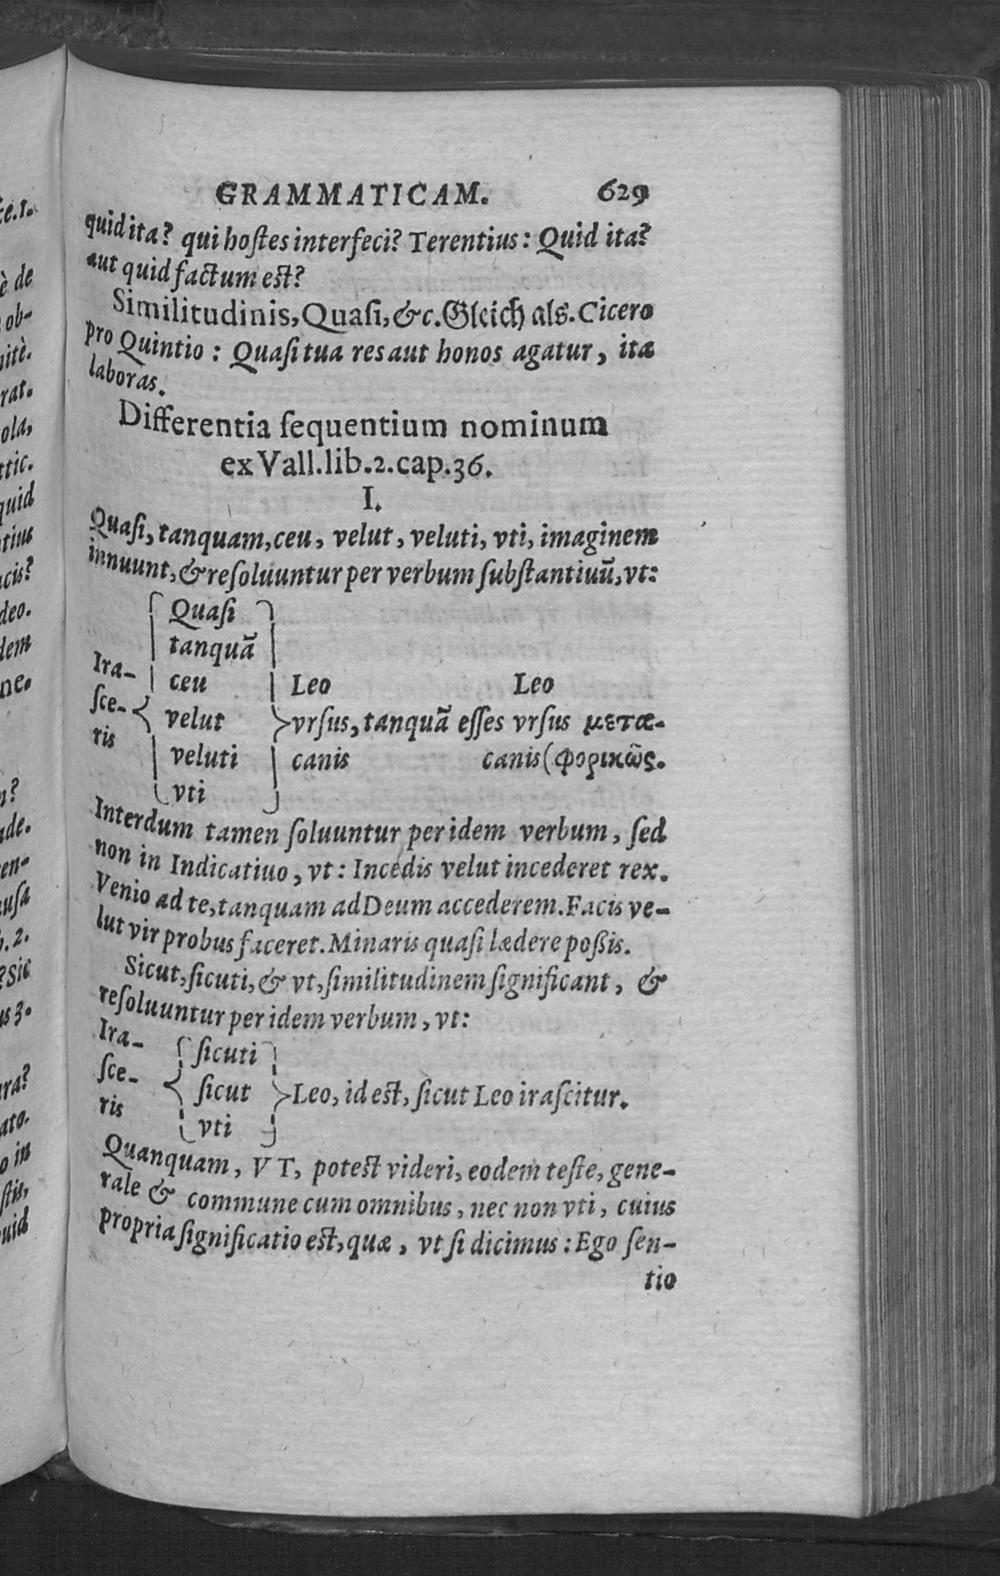 GRAMMATICAM. 629
quid ita? qui hostes interfeci? Terentius: Quid ita?
aut quid factum est?
Similitudinis, Quasi, &c. Gleich als. Cicero
pro Quintio: Quasi tua res aut honos agatur, ita
laboras.
Differentia sequentium nominum
ex Vall. lib. 2. cap. 36.
I.
Quasi, tanquam, ceu, velut, veluti, vti, imaginem
innuunt, & resoluuntur per verbum substantiuū, vt:
Quasi
tanquā
Ira- ceu Leo Leo
sce- velut vrsus, tanquā esses vrsus μετα-
ris veluti canis canis (φορικῶς.
vti
Interdum tamen soluuntur per idem verbum, sed
non in Indicatiuo, vt: Incedis velut incederet rex.
Venio ad te, tanquam ad Deum accederem. Facis ve-
lut vir probus faceret. Minaris quasi lædere possis.
Sicut, sicuti, & vt, similitudinem significant, &
resoluuntur per idem verbum, vt:
Ira- sicuti
sce- sicut Leo, id est, sicut Leo irascitur.
ris vti
Quanquam, VT, potest videri, eodem teste, gene-
rale & commune cum omnibus, nec non vti, cuius
propria significatio est, quæ, vt si dicimus: Ego sen-
tio